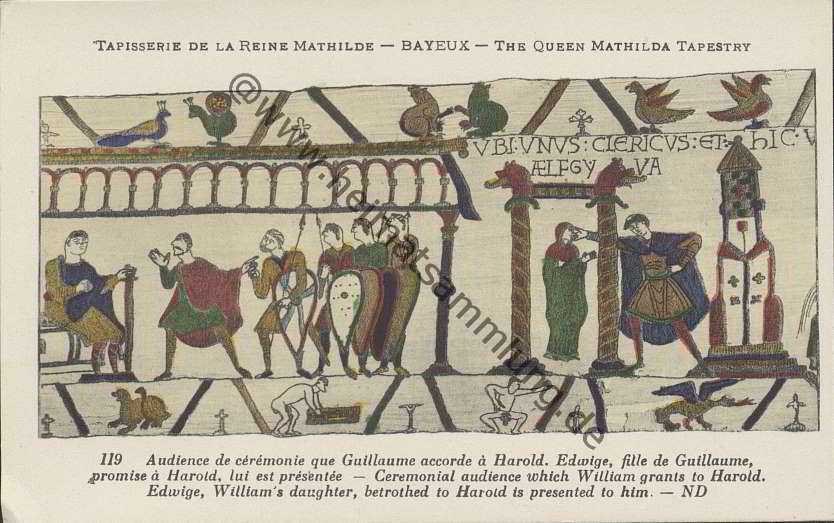 TAPISSERIE DE LA REINE MATHILDE — BAYEUX — THE QUEEN MATHILDA TAPESTRY
VBI:VNVS:CLERICVS:ET: HIC V
ÆLFGY VA
@www.heimatsammlung.de
119 Audience de cérémonie que Guillaume accorde à Harold. Edwige, fille de Guillaume,
promise à Harold, lui est présentée — Ceremonial audience which William grants to Harold.
Edwige, William's daughter, betrothed to Harold is presented to him. — ND